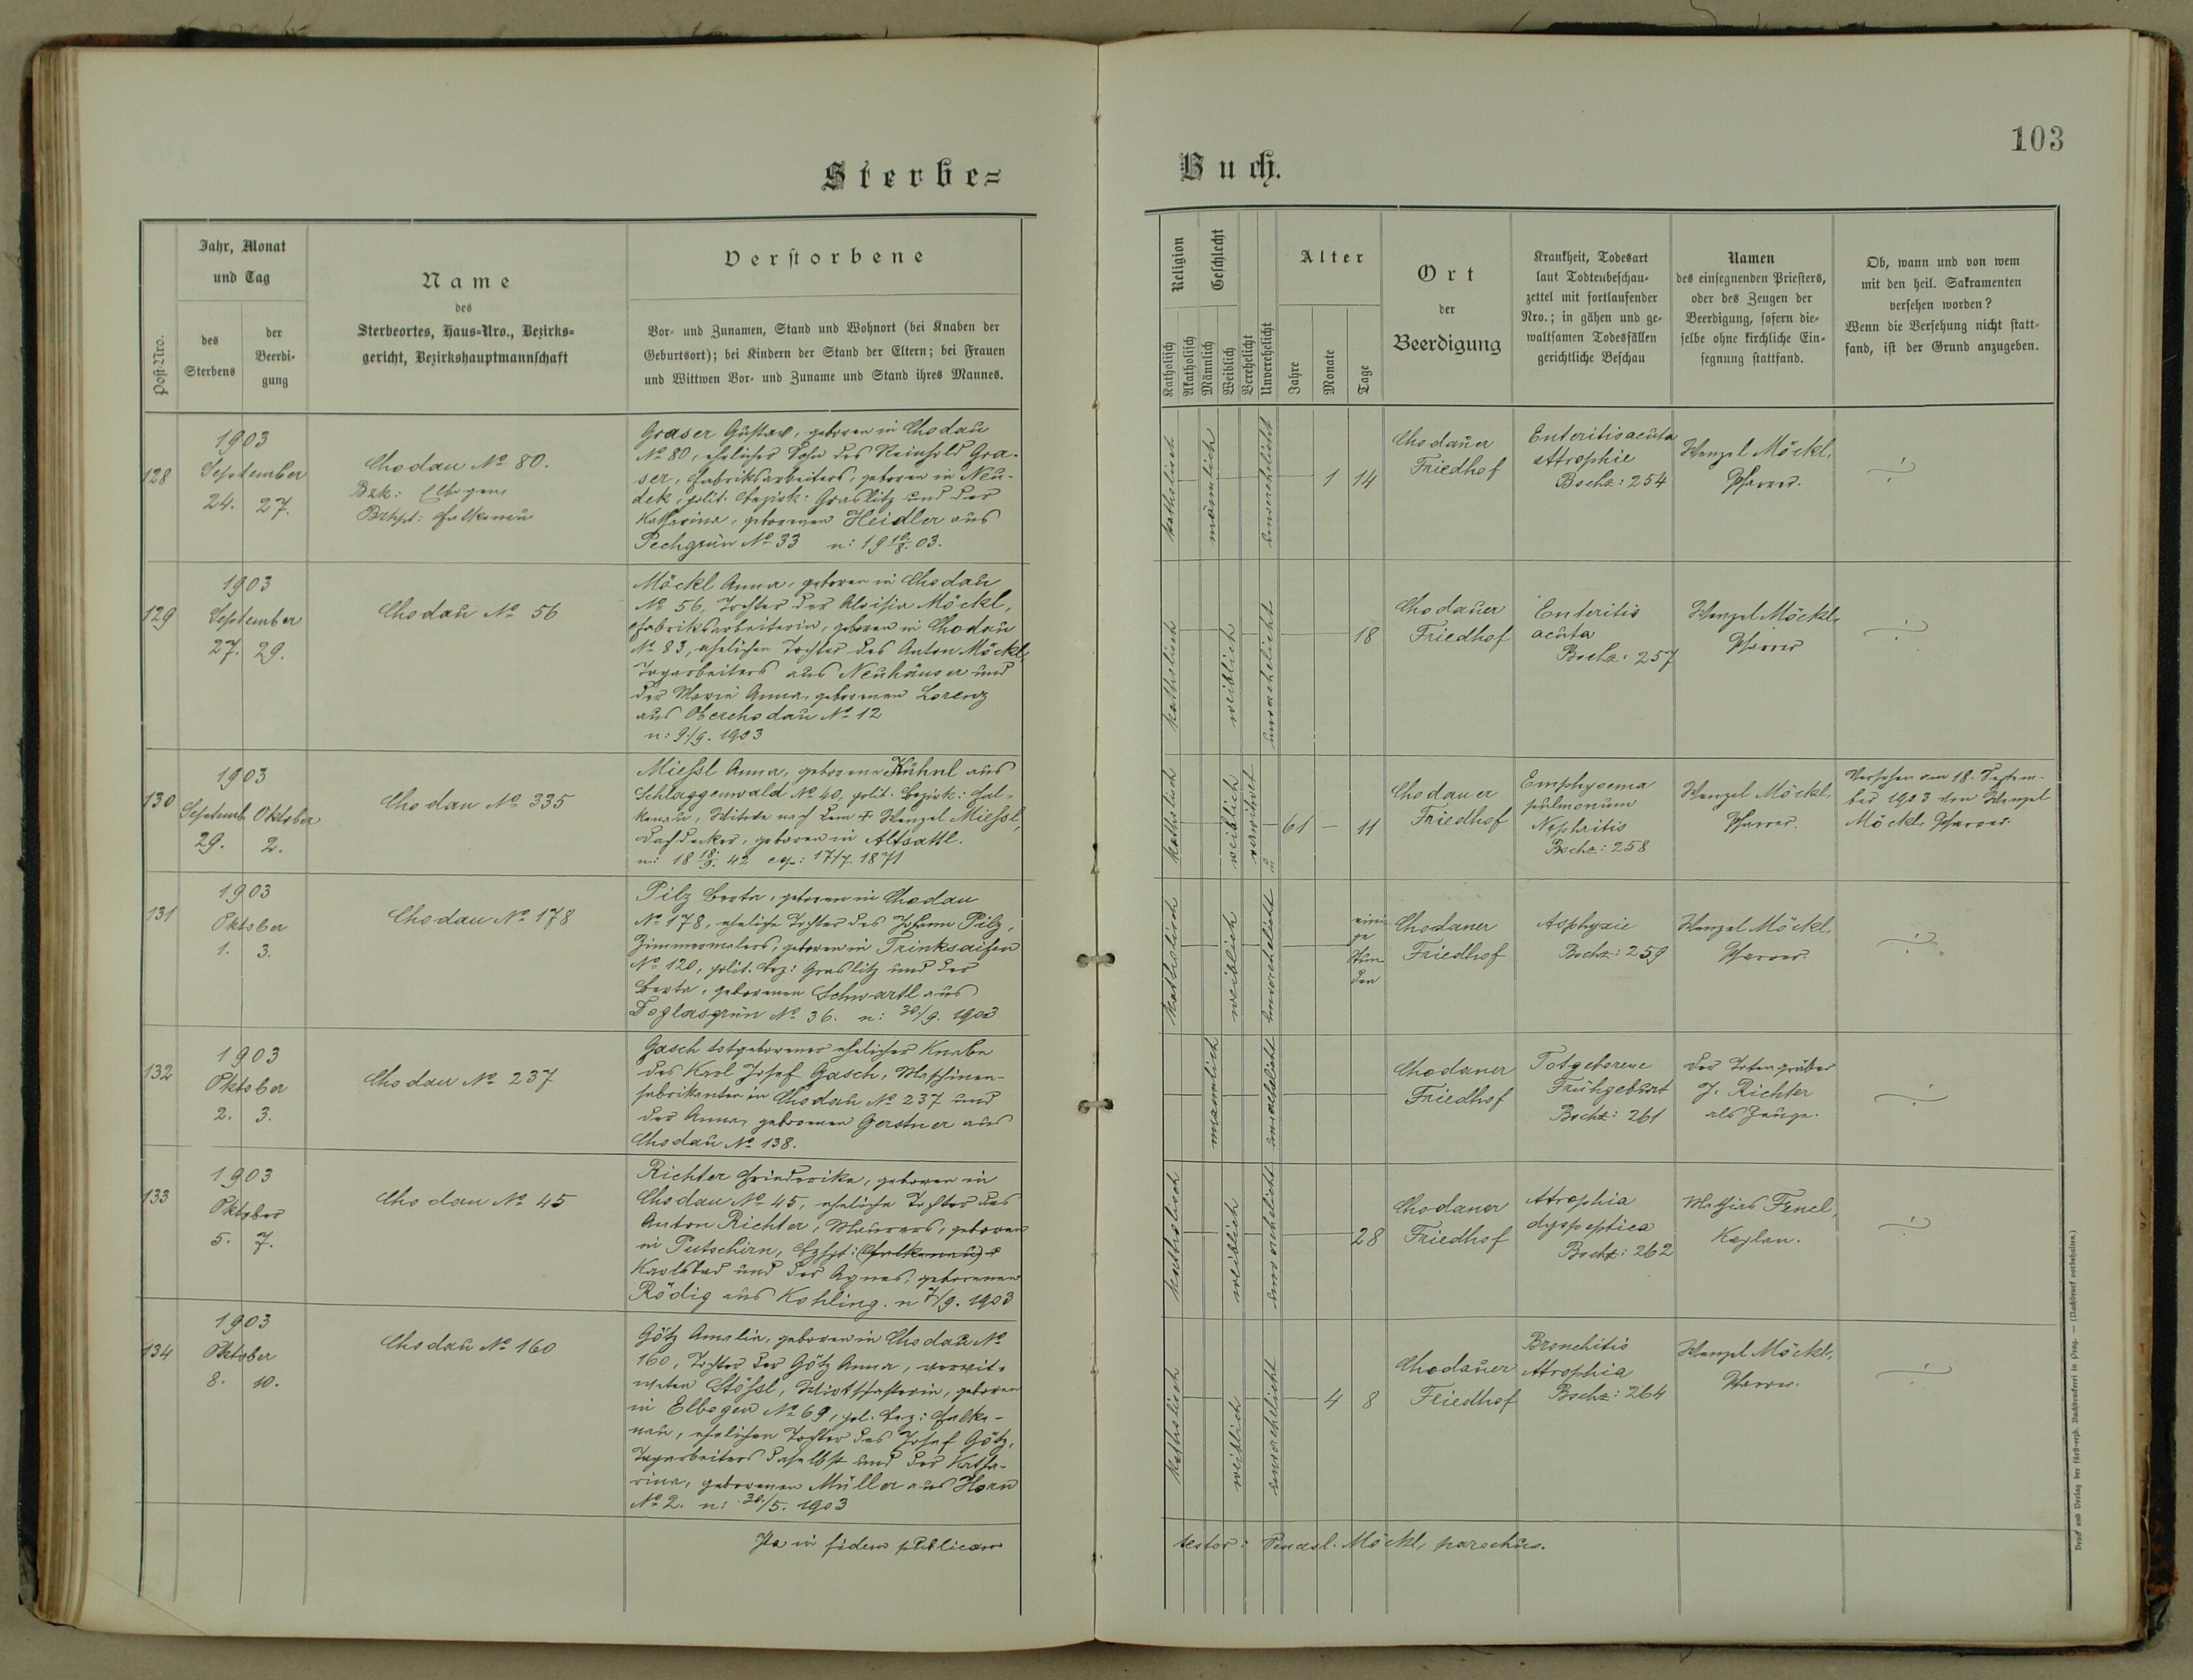 103
Sterbe=
Buch.
Post-Nro.
Jahr, Monat
und Tag
des
Sterbens
der
Beerdi-
gung
Name
des
Sterbeortes, Haus-Nro., Bezirks-
gericht, Bezirkshauptmannschaft
Verstorbene
Vor- und Zunamen, Stand und Wohnort (bei Knaben der
Geburtsort); bei Kindern der Stand der Eltern; bei Frauen
und Wittwen Vor- und Zuname und Stand ihres Mannes.
Religion
Katholisch
Akatholisch
Geschlecht
Männlich
Weiblich
Verehelicht
Unverehelicht
Alter
Jahre
Monate
Tage
Ort
der
Beerdigung
Krankheit, Todesart
laut Todtenbeschau-
zettel mit fortlaufender
Nro.; in gähen und ge-
waltsamen Todesfällen
gerichtliche Beschau
Namen
des einsegnenden Priesters,
oder des Zeugen der
Beerdigung, sofern die-
selbe ohne kirchliche Ein-
segnung stattfand.
Ob, wann und von wem
mit den heil. Sakramenten
versehen worden?
Wenn die Versehung nicht statt-
fand, ist der Grund anzugeben.
128
1903
September
24. 27.
Chodau № 80.
Bzk: Elbogen
Bzhpt: Falkenau
Graser Gustav, geboren in Chodau
№ 80, ehelicher Sohn des Reinhold Gra-
ser, Fabriksarbeiters, geboren in Neu-
dek, polit. Bezirk: Graslitz und der
Katharina, geborenen Heidler aus
Pechgrün № 33 n: 19 10/8. 03.
katholisch
männlich
unverehelicht
1 14
Chodauer
Friedhof
Enteritis acuta
Atrophie
Bschz: 254
Wenzel Möckl,
Pfarrer.
129
1903
September
27. 29.
Chodau № 56
Möckl Anna, geboren in Chodau
№ 56, Tochter der Aloisia Möckl,
Fabriksarbeiterin, geboren in Chodau
№ 83, ehelichen Tochter des Anton Möckl,
Tagarbeiters aus Neuhäuser und
der Maria Anna, geborenen Lorenz
aus Oberchodau № 12
n: 9./9. 1903
katholisch
weiblich
unverehelicht
18
Chodauer
Friedhof
Enteritis
acuta
Bschz: 257
Wenzel Möckl,
Pfarrer
130
1903
Septemb Oktober
29. 2.
Chodau № 335
Miessl Anna, geborene Kühnl aus
Schlaggenwald № 40, polit. Bezirk: Fal-
kenau, Witwe nach dem † Wenzel Miessl,
Dachdecker, geboren in Altsattl.
n: 18 18/9. 42 cop: 17/7. 1871
katholisch
weiblich
verwitwet
61 — 11
Chodauer
Friedhof
Emphysema
pulmonum
Nephritis
Bschz: 258
Wenzel Möckl,
Pfarrer.
Versehen am 18. Septem-
ber 1903 von Wenzel
Möckl, Pfarrer.
131
1903
Oktober
1. 3.
Chodau № 178
Pilz Berta, geboren in Chodau
№ 178, eheliche Tochter des Johann Pilz,
Zimmermalers, geboren in Trinksaifen
№ 120, polit. Bez: Graslitz und der
Berta, geborenen Schwartl aus
Doglasgrün № 36. n: 30/9. 1903
katholisch
weiblich
unverehelicht
eini-
ge
Stun
den
Chodauer
Friedhof
Asphyxie
Bschz: 259
Wenzel Möckl,
Pfarrer.
132
1903
Oktober
2. 3.
Chodau № 237
Gasch totgeborener ehelicher Knabe
des Karl Josef Gasch, Maschinen-
fabrikanten in Chodau № 237 und
der Anna, geborenen Gerstner aus
Chodau № 138.
männlich
unverehelicht
Chodauer
Friedhof
Totgeborene
Frühgeburt
Bschz: 261
Der Totengräber
J. Richter
als Zeuge.
133
1903
Oktober
5. 7.
Chodau № 45
Richter Friederika, geboren in
Chodau № 45, eheliche Tochter des
Anton Richter, Maurers, geboren
in Putschirn, Bzhpt: (Falkenau)
Karlsbad und der Agnes, geborenen
Rödig aus Kohling. n 7/9. 1903
katholisch
weiblich
unverehelicht
28
Chodauer
Friedhof
Atrophia
dyspeptica
Bschz: 262
Mathias Fenel,
Kaplan.
134
1903
Oktober
8. 10.
Chodau № 160
Götz Amalia, geboren in Chodau №
160, Tochter der Götz Anna, verwit-
weten Stössl, Wirtschafterin, geboren
in Elbogen № 69, pol. Bez: Falke-
nau, ehelichen Tochter des Josef Götz,
Tagarbeiters daselbst und der Katha-
rina, geborenen Müller aus Horn
№ 2. n: 30./5. 1903
katholisch
weiblich
unverehelicht
4 8
Chodauer
Friedhof
Bronchitis
Atrophia
Bschz: 264
Wenzel Möckl,
Pfarrer.
Ita in fidem publicam
testor: Venasl. Möckl, parochus.
Druck und Verlag der fürst-erzb. Buchdruckerei in Prag. — (Nachdruck vorbehalten.)